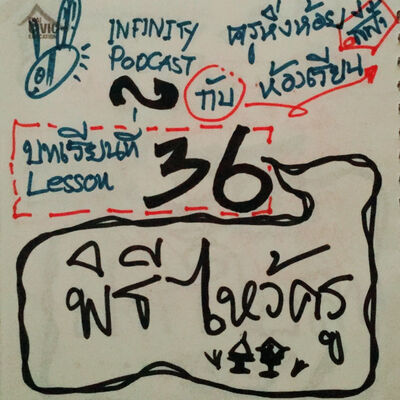 CIVIC
EDUCATION
INFINITY
PODCAST
ครูหิ่งห้อย
กับ ห้องเรียน
บทเรียนที่
Lesson
36
พิธี ไหว้ครู